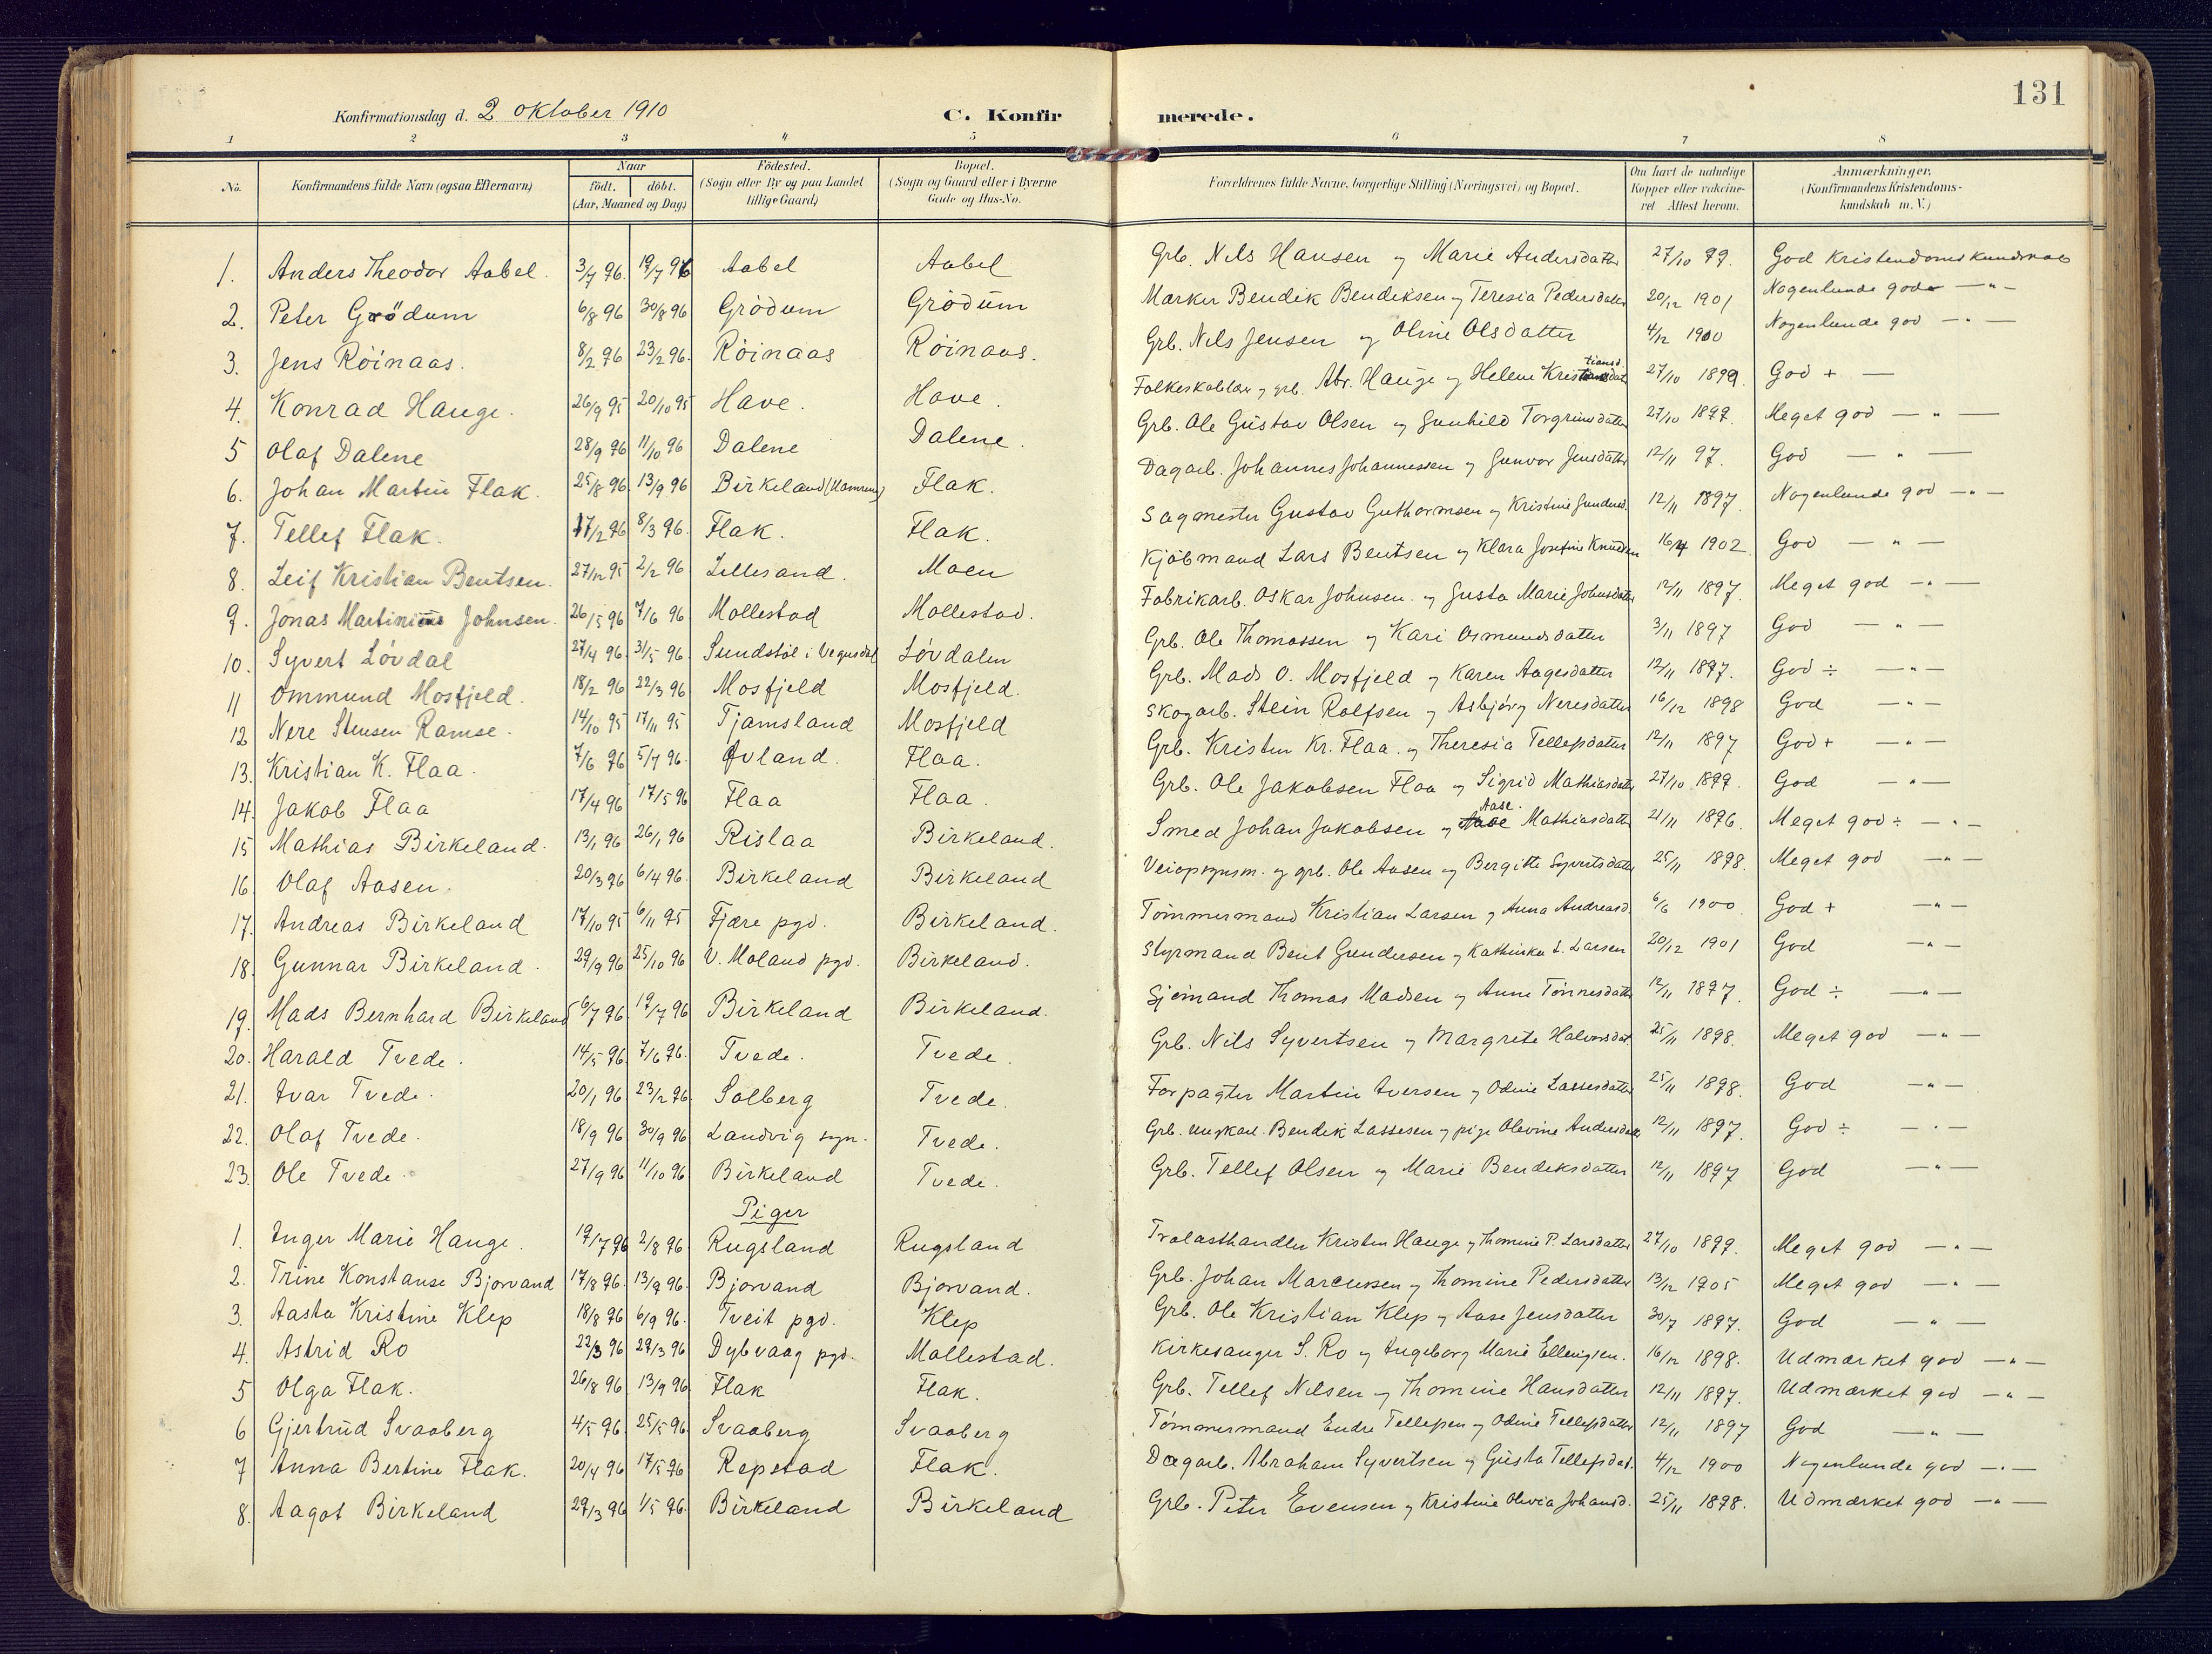 131
Konfirmationsdag d. 2 Oktober 1910 C. Konfirmerede.
1 2 3 4 5 6 7 8
No. Konfirmandens fulde Navn (ogsaa Efternavn) Naar födt. döbt. (Aar, Maaned og Dag) Födested. (Sogn eller By og paa Landet tillige Gaard) Bopæl. (Sogn og Gaard eller i Byerne Gade og Hus-No. Forældrenes fulde Navne, borgerlige Stilling (Næringsvei) og Bopæl. Om havt de naturlige Kopper eller vakcineret Attest herom. Anmærkninger. (Konfirmandens Kristendomskundskab m. V.)
1. Anders Theodor Aabel. 3/7 96. 19/7 96 Aabel Aabel Grb. Nils Hansen og Marie Andersdatter 27/10 99. God Kristendomskundskab
2. Peter Grödum 6/8 96 30/8 96 Grödum Grödum Marker Bendik Bendiksen og Teresia Pedersdatter 20/12 1901 Nogenlunde god — " —
3. Jens Röinaas. 8/2 96 23/2 96. Röinaas Röinaas. Grb. Nils Jensen og Oline Olsdatter 4/12 1900 Nogenlunde god — " —
4. Konrad Hauge. 26/9 95 20/10 95 Have. Have. Folkeskolelær. og grb. Abr. Hauge og Helene Kristiansd. 27/10 1899. God + —
5 Olaf Dalene 28/9 96 11/10 96 Dalene Dalene. Grb. Ole Gustav Olsen og Gunhild Torgrimsdatter 27/10 1899. Meget god — " —
6. Johan Martin Flak. 25/8 96. 13/9 96 Birkeland (Hamrene) Flak. Dagarb. Johannes Johannessen og Gunvor Jensdatter 12/11 97. God — " —
7. Tellef Flak. 17/2 96 8/3 96. Flak. Flak. Sagmester Gustav Guthormsen og Kristine Gundersd. 12/11 1897. Nogenlunde god — " —
8. Leif Kristian Bentsen. 27/12 95 2/2 96 Lillesand. Moen Kjöbmand Lars Bentsen og Klara Josefine Knudsen 16/4 1902 God — " —
9. Jonas Martinius Johnsen. 26/5 96 7/6 96 Mollestad Mollestad. Fabrikarb. Oskar Johnsen. og Gusta Marie Johnsdatter 12/11 1897. Meget god — " —
10. Syvert Lövdal 27/4 96. 31/5 96. Sundstöl i Vegusdal Lövdalen Grb. Ole Thomassen og Kari Osmundsdatter 3/11 1897 God — " —
11 Ommund Mosfjeld. 18/2 96 22/3 96 Mosfjeld Mosfjeld. Grb. Mads O. Mosfjeld og Karen Aagesdatter 12/11 1897. God ÷ — " —
12 Nere Stensen Ramse. 14/10 95 17/11 95 Tjamsland Mosfjeld Skogarb. Stein Rolfsen og Asbjörg Neresdatter 16/12 1898 God — " —
13. Kristian K. Flaa. 7/6 96 5/7 96. Øvland. Flaa. Grb. Kristen Kr. Flaa. og Theresia Tellefsdatter 12/11 1897 God + — " —
14. Jakob Flaa 17/4 96 17/5 96 Flaa Flaa. Grb. Ole Jakobsen Flaa og Sigrid Mathiasdatter 27/10 1899. God — " —
15 Mathias Birkeland. 13/1 96 26/1 96 Rislaa Birkeland. Smed Johan Jakobsen og Aase Mathiasdatter 21/11 1896. Meget god ÷ — " —
16. Olaf Aasen. 20/3 96 6/4 96. Birkeland Birkeland Veiopsynsm. og grb. Ole Aasen og Bergitte Syvertsdatter 25/11 1898. Meget god — " —
17. Andreas Birkeland 17/10 95 6/11 95 Fjære pgd. Birkeland. Tömmermand Kristian Larsen og Anna Andreasd. 6/6 1900 God + — " —
18. Gunnar Birkeland. 29/9 96 25/10 96 V. Moland pgd. Birkeland. Styrmand Bent Gundersen og Kathinka L. Larsen 20/12 1901 God — " —
19. Mads Bernhard Birkeland 6/7 96. 19/7 96 Birkeland Birkeland. Sjömand Thomas Madsen og Anne Tönnesdatter 12/11 1897. God ÷ — " —
20. Harald Tvede. 14/5 96. 7/6 96. Tvede. Tvede. Grb. Nils Syvertsen og Margrete Halvorsdat. 25/11 1898. Meget god — " —
21. Ivar Tvede. 20/1 96 23/2 96 Solberg Tvede. Forpagter Martin Iversen og Odine Lassesdatter 25/11 1898. God — " —
22. Olaf Tvede. 18/9 96 30/9 96 Landvig sogn. Tvede. Grb. ungkarl. Bendik Lassesen og pige Olevine Andersdatter 12/11 1897. God ÷ — " —
23. Ole Tvede. 27/9 96 11/10 96 Birkeland Tvede. Grb. Tellef Olsen og Marie Bendiksdatter 12/11 1897 God — " —
Piger
1. Inger Marie Hauge. 19/7 96 2/8 96. Rugsland Rugsland Trælasthandler Kristen Hauge og Thomine P. Larsdatter 27/10 1899. Meget god — " —
2. Trine Konstanse Bjorvand 17/8 96. 13/9 96. Bjorvand Bjorvand. Grb. Johan Marcussen og Thomine Pedersdatter 13/12 1905 Meget god — " —
3. Aasta Kristine Klep 18/8 96 6/9 96. Tveit pgd. Klep Grb. Ole Kristian Klep og Aase Jensdatter 30/7 1897. God — " —
4. Astrid Ro 22/3 96 29/3 96 Dybvaag pgd. Mollestad. Kirkesanger S. Ro og Ingeborg Marie Ellingsen. 16/12 1898. Udmærket god — " —
5 Olga Flak. 26/8 96 13/9 96 Flak Flak. Grb. Tellef Nilsen og Thomine Hansdatter 12/11 1897. Udmærket god — " —
6 Gjertrud Svaaberg 4/5 96. 25/5 96. Svaaberg Svaaberg Tömmermand Endre Tellefsen og Odine Tellefsdatter 12/11 1897 God — " —
7 Anna Bertine Flak. 20/4 96 17/5 96 Repstad Flak. Dagarb. Abraham Syvertsen og Gusta Tellefsdat. 4/12 1900 Nogenlunde god — " —
8. Aagot Birkeland 29/3 96 1/5 96. Birkeland Birkeland Grb. Peter Evensen og Kristine Olevia Johansd. 25/11 1898. Udmærket god — " —